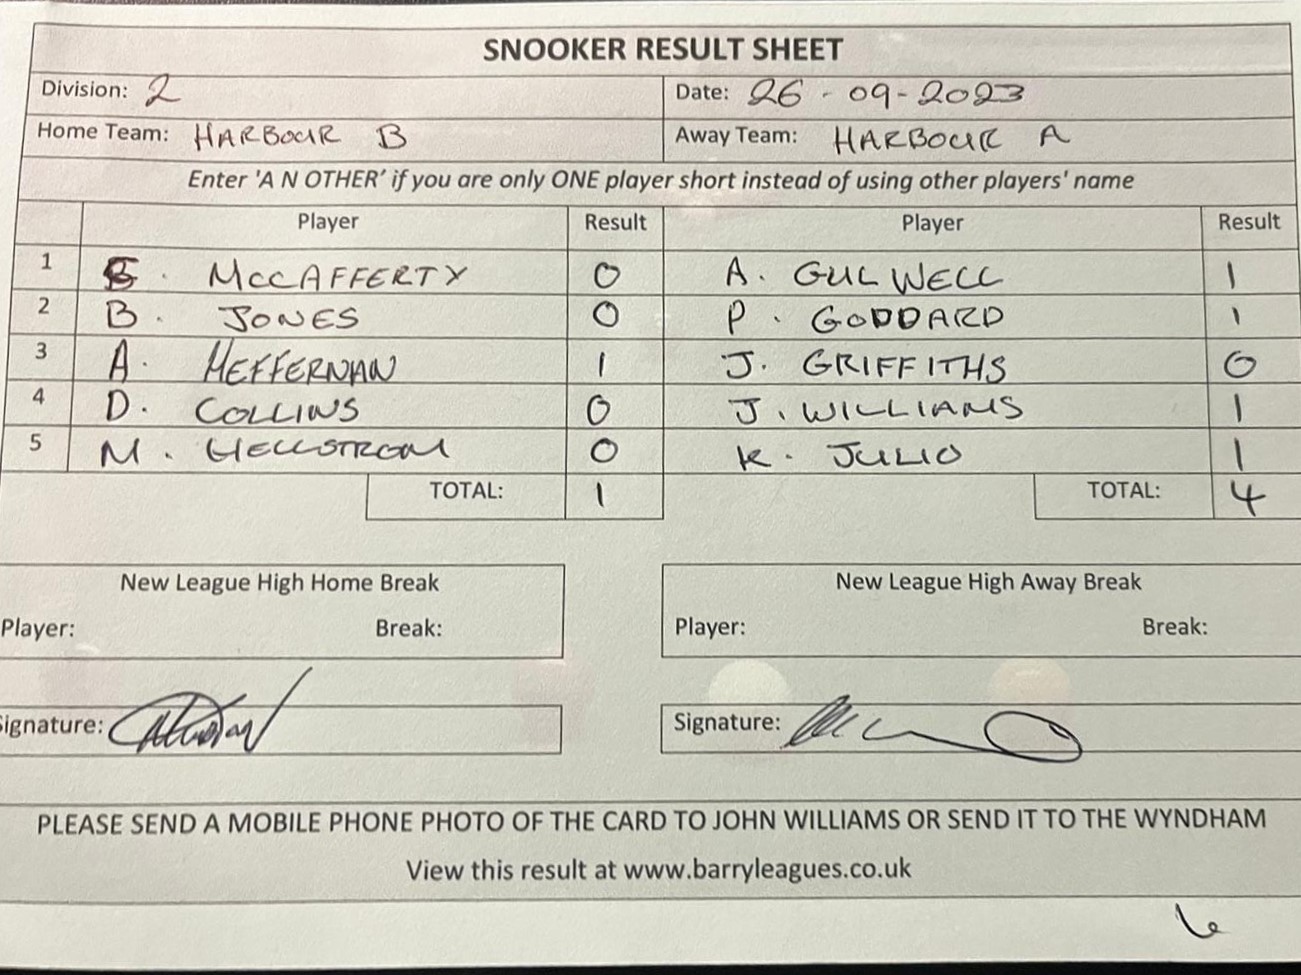 SNOOKER RESULT SHEET
Division: 2 Date: 26-09-2023
Home Team: HARBOUR B Away Team: HARBOUR A
Enter 'A N OTHER' if you are only ONE player short instead of using other players' name
Player Result Player Result
1 McCAFFERTY 0 A. GULWELL 1
2 B. JONES 0 P. GODDARD 1
3 A. HEFFERNAN 1 J. GRIFFITHS 0
4 D. COLLINS 0 J. WILLIAMS 1
5 M. HELLSTROM 0 K. JULIO 1
TOTAL: 1 TOTAL: 4
New League High Home Break New League High Away Break
Player: Break: Player: Break:
Signature: Signature:
PLEASE SEND A MOBILE PHONE PHOTO OF THE CARD TO JOHN WILLIAMS OR SEND IT TO THE WYNDHAM
View this result at www.barryleagues.co.uk